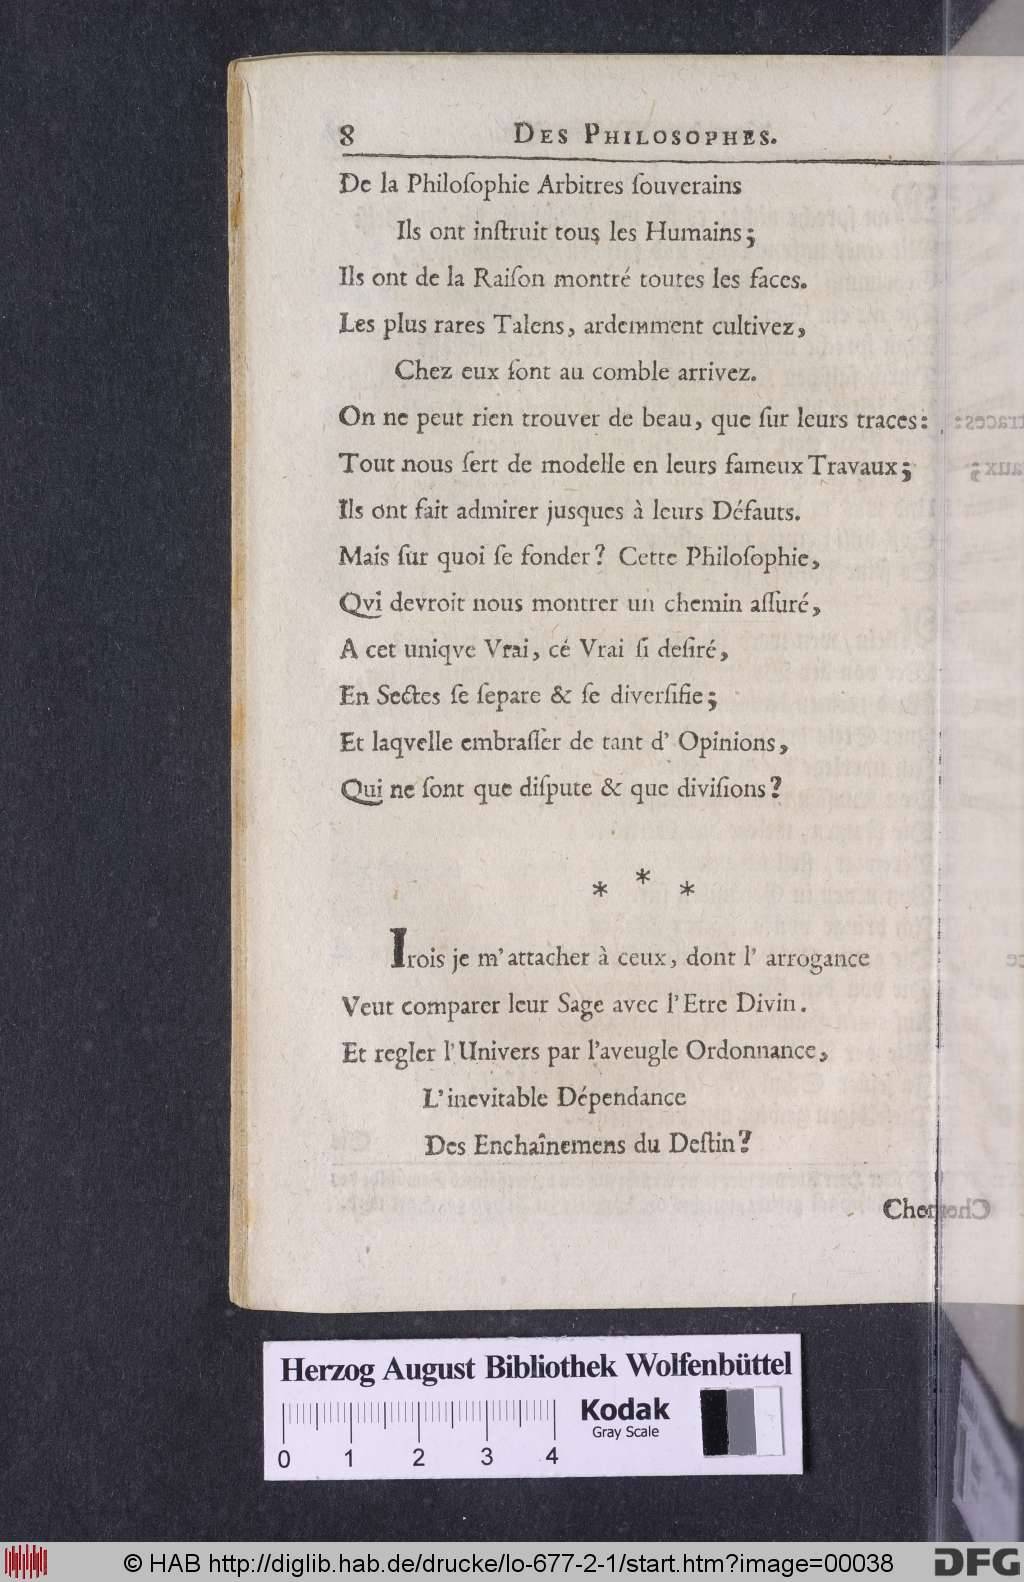 8 DES PHILOSOPHES.
De la Philoſophie Arbitres ſouverains
Ils ont inſtruit tous les Humains;
Ils ont de la Raiſon montré toutes les faces.
Les plus rares Talens, ardemment cultivez,
Chez eux ſont au comble arrivez.
On ne peut rien trouver de beau, que ſur leurs traces:
Tout nous ſert de modelle en leurs fameux Travaux;
Ils ont fait admirer jusques à leurs Défauts.
Mais ſur quoi ſe fonder? Cette Philoſophie,
Qvi devroit nous montrer un chemin aſſuré,
A cet uniqve Vrai, cé Vrai ſi deſiré,
En Sectes ſe ſepare & ſe diverſifie;
Et laqvelle embraſſer de tant d' Opinions,
Qui ne ſont que diſpute & que diviſions?
* * *
Irois je m'attacher à ceux, dont l' arrogance
Veut comparer leur Sage avec l'Etre Divin.
Et regler l'Univers par l'aveugle Ordonnance,
L'inevitable Dépendance
Des Enchaînemens du Deſtin?
Herzog August Bibliothek Wolfenbüttel
Kodak
Gray Scale
0 1 2 3 4
© HAB http://diglib.hab.de/drucke/lo-677-2-1/start.htm?image=00038
DFG